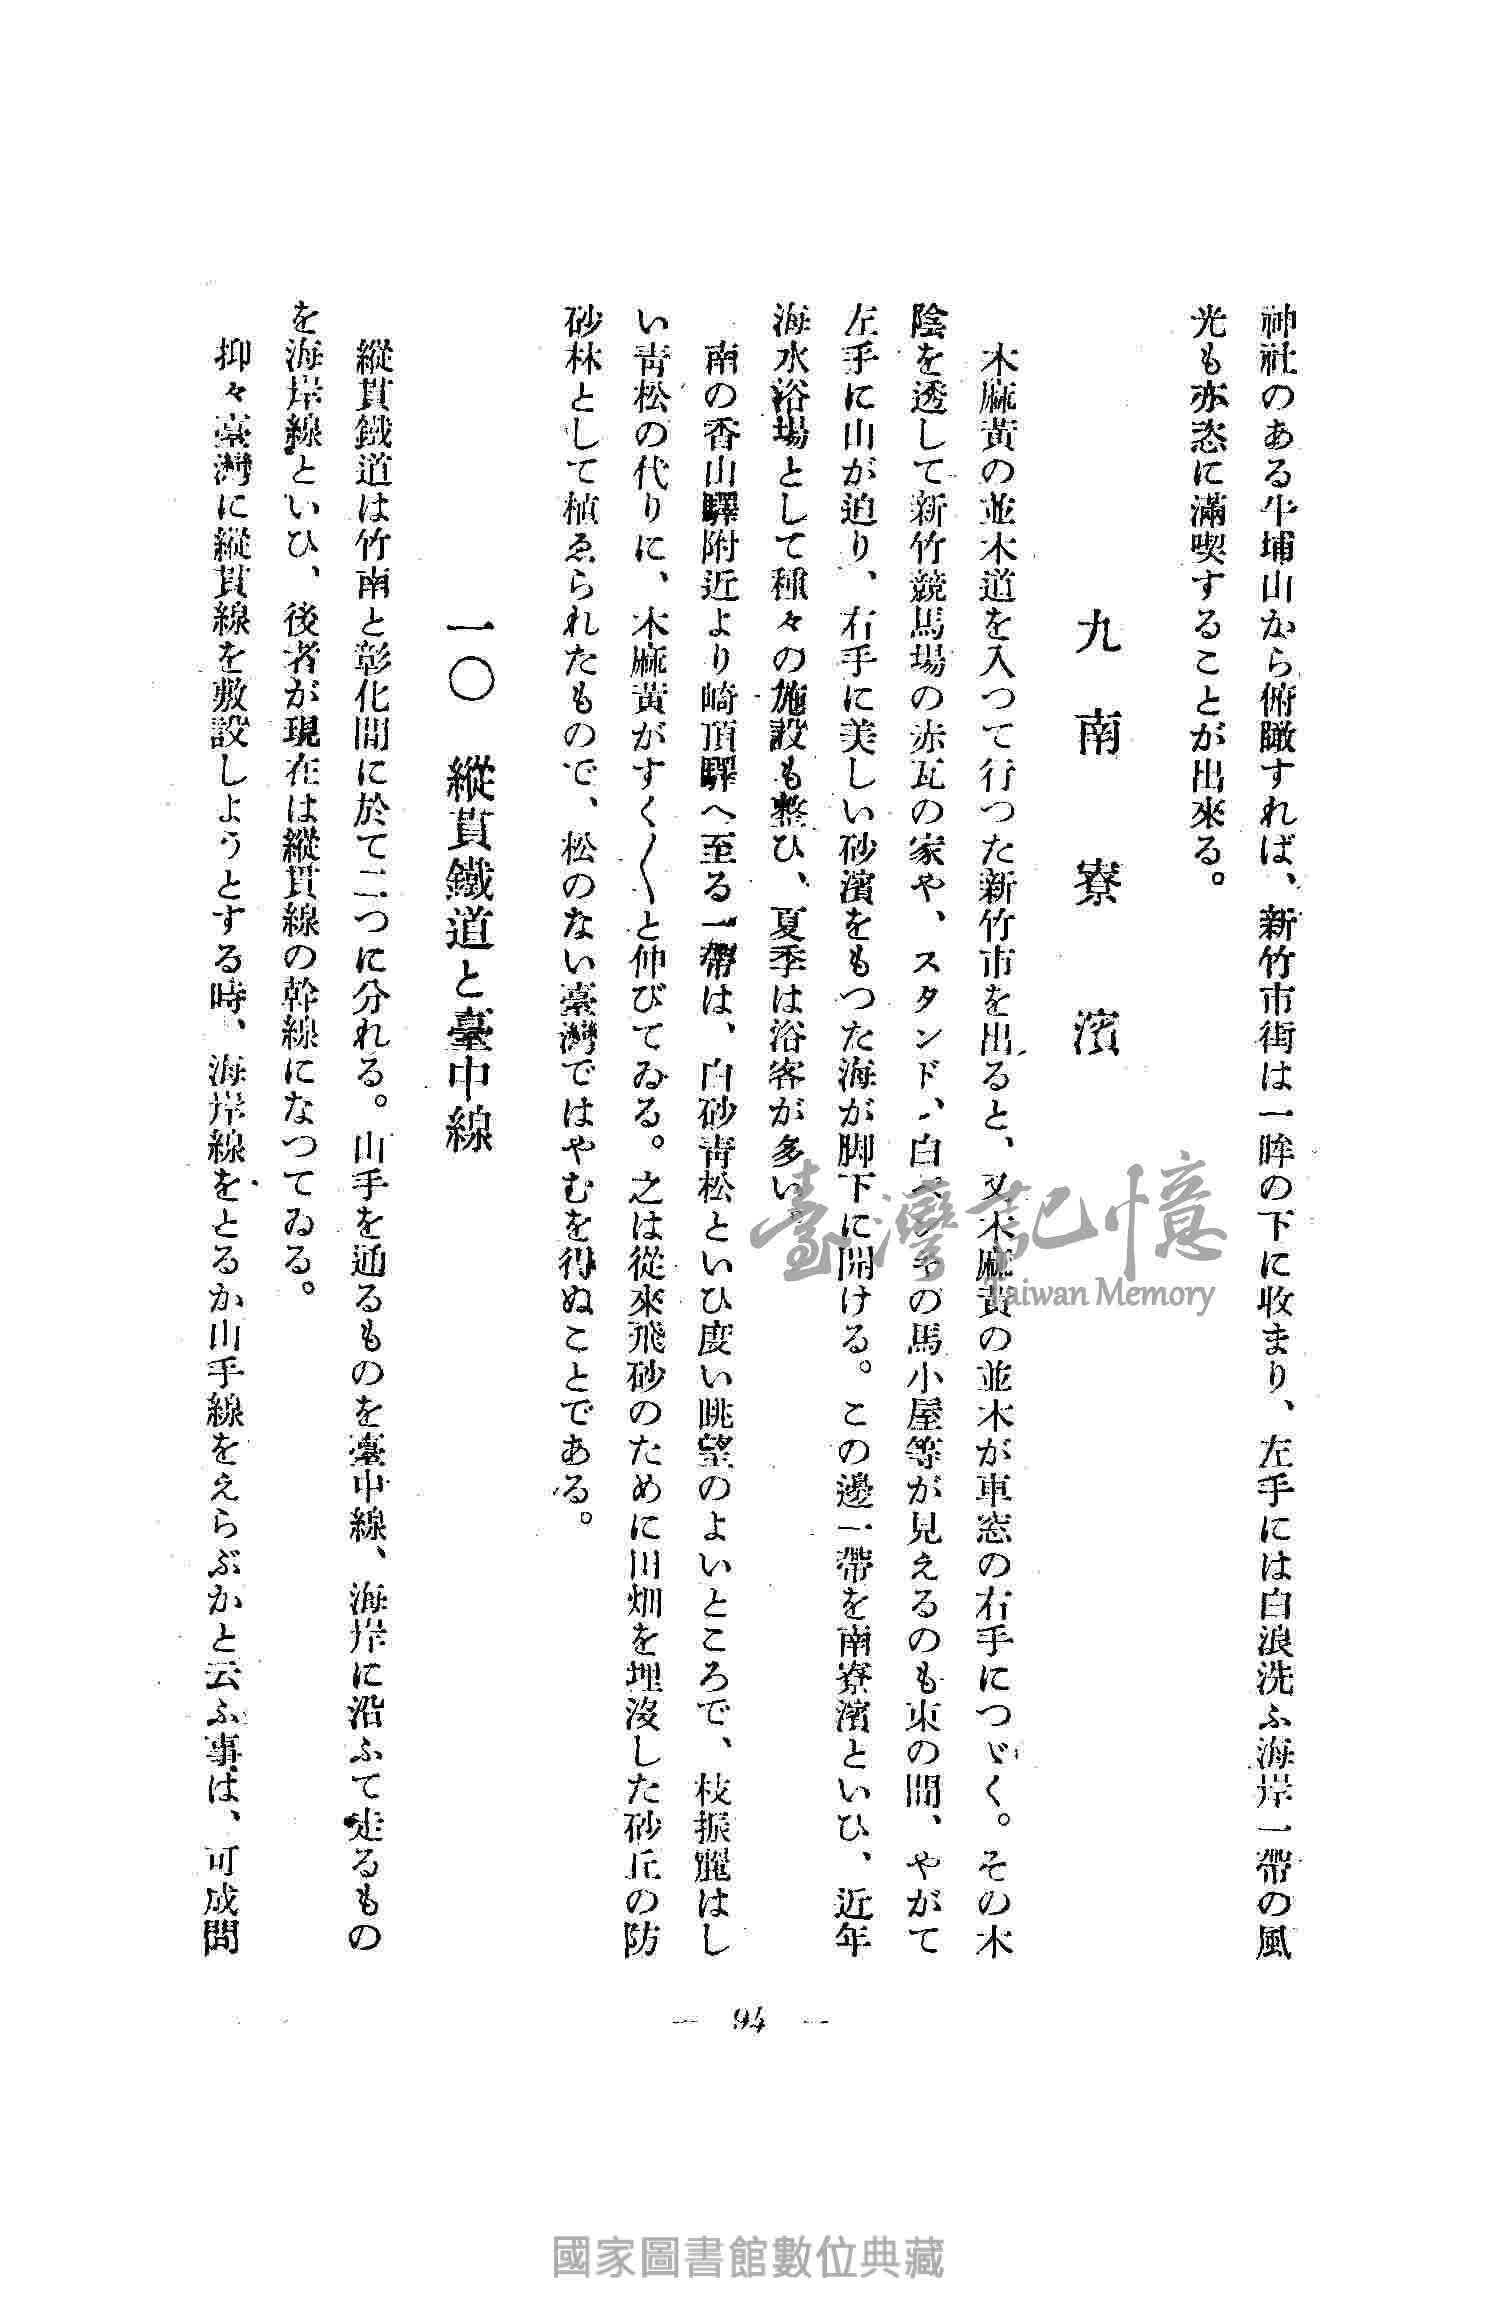 神社のある牛埔山から俯瞰すれば、新竹市街は一眸の下に收まり、左手には白浪洗ふ海岸一帶の風
光も亦恣に滿喫することが出來る。
九 南寮濱
木麻黃の並木道を入つて行つた新竹市を出ると、又木麻黃の並木が車窓の右手につゞく。その木
陰を透して新竹競馬場の赤瓦の家や、スタンド、白ペンキの馬小屋等が見えるのも束の間、やがて
左手に山が迫り、右手に美しい砂濱をもつた海が脚下に開ける。この邊一帶を南寮濱といひ、近年
海水浴場として種々の施設も整ひ、夏季は浴客が多い。
南の香山驛附近より崎頂驛へ至る一帶は、白砂靑松といひ度い眺望のよいところで、枝振麗はし
い靑松の代りに、木麻黃がすく〱と伸びてゐる。之は從來飛砂のために田畑を埋沒した砂丘の防
砂林として植ゑられたもので、松のない臺灣ではやむを得ぬことである。
一〇 縱貫鐵道と臺中線
縱貫鐵道は竹南と彰化間に於て二つに分れる。山手を通るものを臺中線、海岸に沿ふて走るもの
を海岸線といひ、後者が現在は縱貫線の幹線になつてゐる。
抑々臺灣に縱貫線を敷設しようとする時、海岸線をとるか山手線をえらぶかと云ふ事は、可成問
— 94 —
臺灣記憶
Taiwan Memory
國家圖書館數位典藏